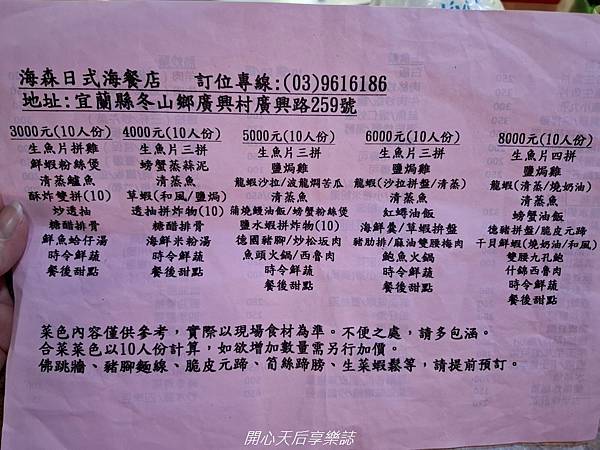 海森日式海餐店 訂位專線:(03)9616186
地址:宜蘭縣冬山鄉廣興村廣興路259號
3000元(10人份)
生魚片拼雞
鮮蝦粉絲煲
清蒸鱸魚
酥炸雙拼(10)
炒透抽
糖醋排骨
鮮魚蛤仔湯
時令鮮蔬
餐後甜點
4000元(10人份)
生魚片三拼
螃蟹蒸蒜泥
清蒸魚
草蝦(和風/鹽焗)
透抽拼炸物(10)
糖醋排骨
海鮮米粉湯
時令鮮蔬
餐後甜點
5000元(10人份)
生魚片三拼
鹽焗雞
龍蝦沙拉/波龍焗苦瓜
清蒸魚
蒲燒鰻油飯/螃蟹粉絲煲
鹽水蝦拼炸物(10)
德國豬腳/炒松坂肉
魚頭火鍋/西魯肉
時令鮮蔬
餐後甜點
6000元(10人份)
生魚片三拼
鹽焗雞
龍蝦(沙拉拼盤/清蒸)
清蒸魚
紅蟳油飯
海鮮羹/草蝦拚盤
豬肋排/麻油雙腰梅肉
鮑魚火鍋
時令鮮蔬
餐後甜點
8000元(10人份)
生魚片四拼
鹽焗雞
龍蝦(清蒸/燒奶油)
清蒸魚
螃蟹油飯
德豬拼盤/脆皮元蹄
干貝鮮蝦(燒奶油/和風)
雙腰九孔鮑
什錦西魯肉
時令鮮蔬
餐後甜點
菜色內容僅供參考，實際以現場食材為準。不便之處，請多包涵。
合菜菜色以10人份計算，如欲增加數量需另行加價。
佛跳牆、豬腳麵線、脆皮元蹄、筍絲蹄膀、生菜蝦鬆等，請提前預訂。
開心天后享樂誌